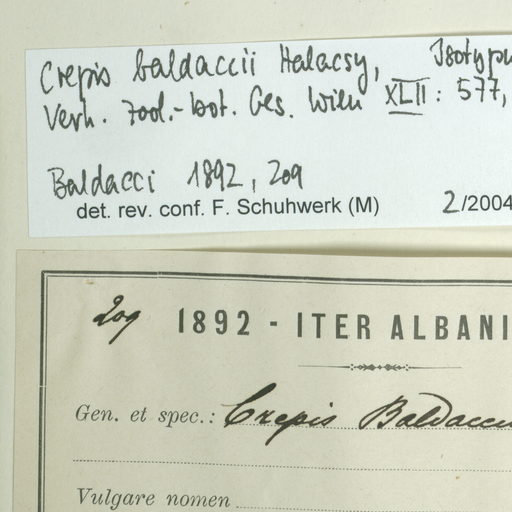 Crepis baldaccii Halacsy, Isotypu
Verh. zool.-bot. Ges. Wien XLII: 577,
Baldacci 1892, 209
det. rev. conf. F. Schuhwerk (M) 2/2004
209 1892 - ITER ALBANI
Gen. et spec.: Crepis Baldaccii
Vulgare nomen